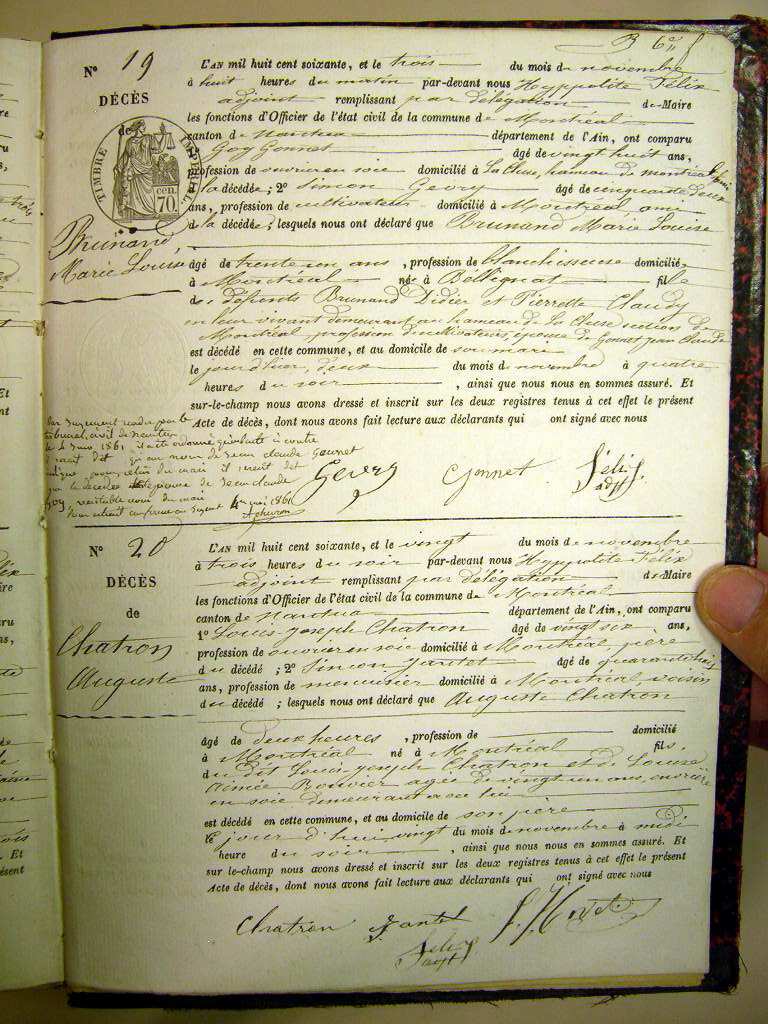 N° 19
DÉCÈS
de
TIMBRE IMPÉRIAL
70. cen
Brunand
Marie Louise
L'AN mil huit cent soixante, et le trois du mois de novembre
à huit heures du matin par-devant nous Hyppolite Félix
adjoint remplissant par délégation de Maire
les fonctions d'Officier de l'état civil de la commune de Montréal
canton de Nantua département de l'Ain, ont comparu
Goy Gonnet âgé de vingt huit ans,
profession de ouvrier en soie domicilié à La Cluse, hameau de montréal
de la décédée ; 2° Simon Gevry âgé de cinquante deux
ans, profession de cultivateur domicilié à Montréal ami
de la décédée ; lesquels nous ont déclaré que Brunand Marie Louise
âgé de trente un ans, profession de blanchisseuse domicilié
à Montréal née à Bellignat fille
de défunts Brunand Didier et Pierrette Claudy
en leur vivant demeurant au hameau de La Cluse section de
Montréal, profession de cultivateurs, épouse de Gonnet jean Claude
est décédé en cette commune, et au domicile de son mari
le jour d'hier, deux du mois de novembre à quatre
heures du soir, ainsi que nous nous en sommes assuré. Et
sur-le-champ nous avons dressé et inscrit sur les deux registres tenus à cet effet le présent
Acte de décès, dont nous avons fait lecture aux déclarants qui ont signé avec nous
Par jugement rendu par le
tribunal civil de Nantua
1861 il a été ordonné
qu'au nom de Jean claude Gonnet
du mari il serait dit
que la décédée épouse de Jean claude
Goy véritable nom du mari
mai 1861
Gevry Gonnet Félix
adjt
N° 20
DÉCÈS
de
Chatron
Auguste
L'AN mil huit cent soixante, et le vingt du mois de novembre
à trois heures du soir par-devant nous Hyppolite Félix
adjoint remplissant par délégation de Maire
les fonctions d'Officier de l'état civil de la commune de Montréal
canton de Nantua département de l'Ain, ont comparu
1° Louis-Joseph Chatron âgé de vingt six ans,
profession de ouvrier en soie domicilié à Montréal, père
du décédé ; 2° Simon Jantet âgé de quarante huit
ans, profession de menuisier domicilié à Montréal, voisin
du décédé ; lesquels nous ont déclaré que Auguste Chatron
âgé de deux heures, profession de domicilié
à Montréal né à Montréal fils
du dit Louis-Joseph Chatron et de Louise
Aimée Bouvier agée de vingt un ans, ouvrière
en soie demeurant avec lui
est décédé en cette commune, et au domicile de son père
le jour d'hui vingt du mois de novembre à midi
heure du soir, ainsi que nous nous en sommes assuré. Et
sur-le-champ nous avons dressé et inscrit sur les deux registres tenus à cet effet le présent
Acte de décès, dont nous avons fait lecture aux déclarants qui ont signé avec nous
Chatron Jantet
Félix
adjt